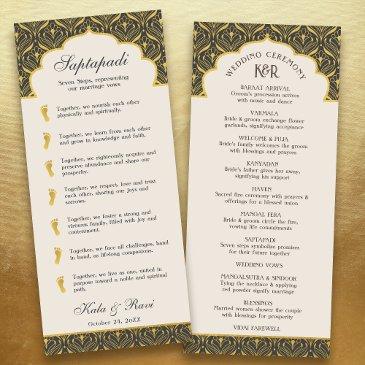 Saptapadi
Seven Steps, representing
our marriage vows
Together, we nourish each other
physically and spiritually.
Together, we learn from each other
and grow in knowledge and faith.
Together, we righteously acquire and
preserve abundance and share our
prosperity.
Together, we respect, love and trust
each other, sharing our joys and
sorrows.
Together, we foster a strong and
virtuous family, filled with joy and
contentment.
Together, we face all challenges, hand
in hand, as lifelong companions.
Together, we live as one, united in
purpose toward a noble and spiritual
path.
Kala & Ravi
October 24, 20XX
WEDDING CEREMONY
K&R
BARAAT ARRIVAL
Groom's procession arrives
with music and dance
VARMALA
Bride & groom exchange flower
garlands, signifying acceptance
WELCOME & PUJA
Bride's family welcomes the groom
with blessings and prayers
KANYADAN
Bride's father gives her away,
signifying his support
HAVEN
Sacred fire ceremony with prayers &
offerings for a blessed union
MANGAL FERA
Bride & groom circle the fire,
vowing life commitments
SAPTAPADI
Seven steps symbolize promises
for their future together
WEDDING VOWS
MANGALSUTRA & SINDOOR
Tying the necklace & applying
vermilion
BLESSINGS
Married women shower the couple
with prosperity
VIDAI FAREWELL